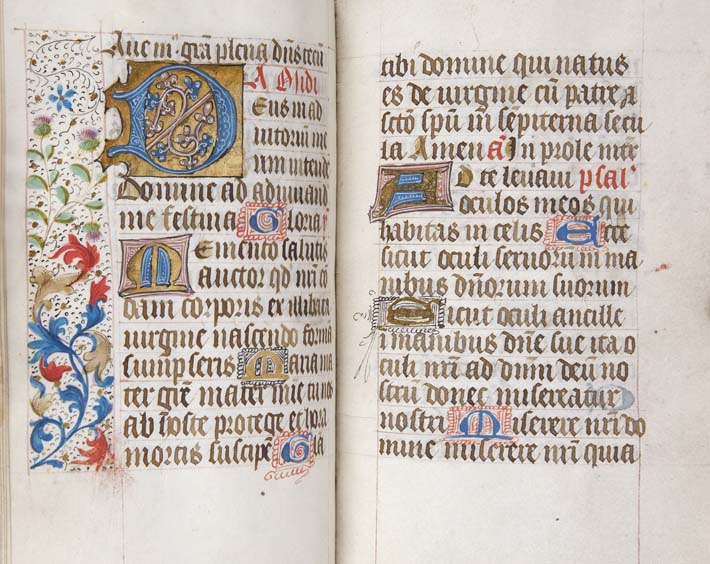 Aue mͣ grã plena dñs tecũ
Ad vidi
Deus in ad
iutorium me
um intende
Domine ad adiuuand
me festina Gloria
Memento salutis
auctor qd nr̃i co
dam corporis ex illibata
uirgine nascendo forma
sumpseris Maria ma
ter grẽ mater mie tu nos
ab hoste protege et hora
mortis suscipe Gla
tibi domine qui natus
es de uirgine cũ patre a
scto spũ in sepiterna secu
la Amen añ In prole mat
Ad te leuaui psal
oculos meos qui
habitas in celis Ecce
sicut oculi seruorum in ma
nibus dñorum suorum
Sicut oculi ancille
i manibus dñe sue ita o
culi nr̃i ad dnm deũ no
strũ donec misereatur
nostri Miserere nr̃i do
mine miserere nr̃i quia